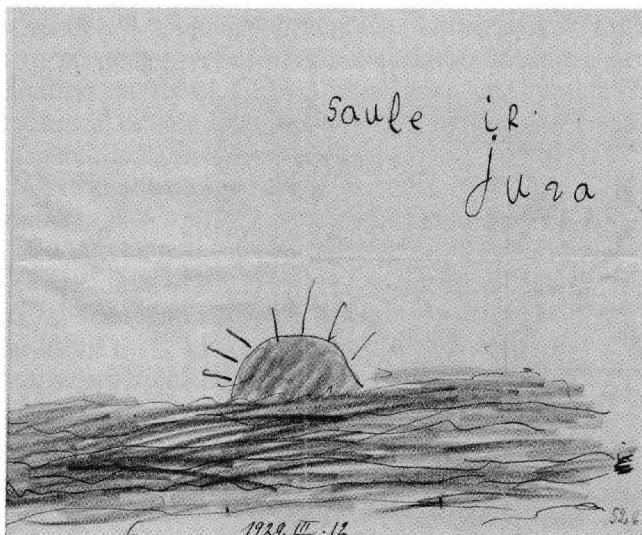 saule iR.
jura
1929. III. 12